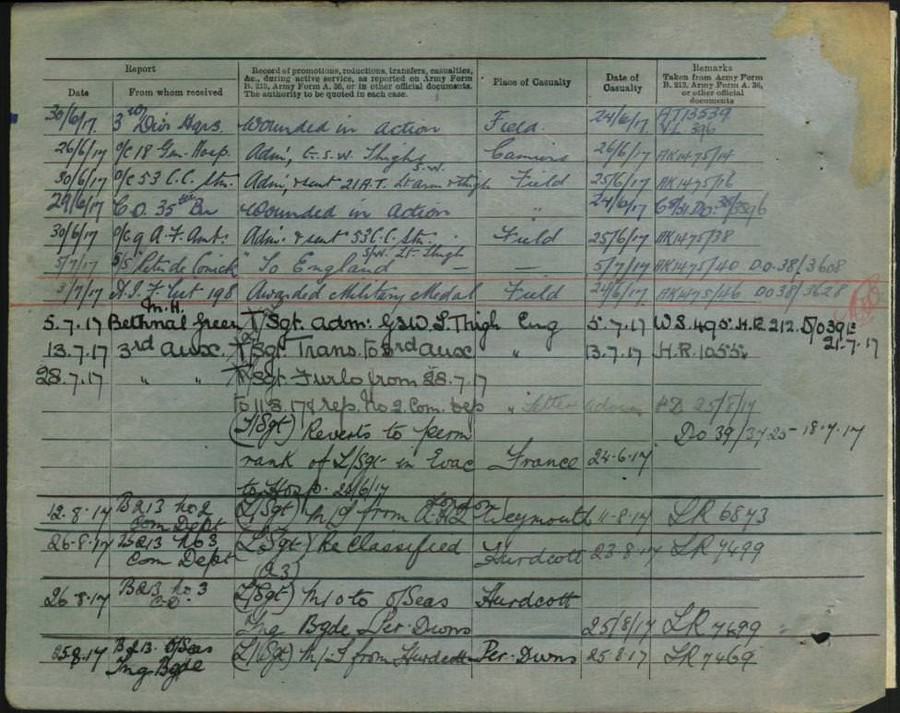 Report
Record of promotions, reductions, transfers, casualties,
&c., during active service, as reported on Army Form
B. 213, Army Form A. 36, or in other official documents.
The authority to be quoted in each case.
Place of Casualty
Date of
Casualty
Remarks
Taken from Army Form
B. 213, Army Form A. 36,
or other official
documents
Date
From whom received
30/6/17. 3rd Div Hqrs. Wounded in action Field. 24/6/17 AT13539
26/6/17 O/C 18 Gen. Hosp. Adm, G.S.W. Thighs Camiers 26/6/17 AK1475/14
30/6/17 O/C 53 C.C. Stn. Adm, & sent 21 A.T. S.W. Lt arm & thigh Field 25/6/17 AK1475/16
29/6/17 C.O. 35th Bn Wounded in action " 24/6/17
30/6/17 O/C 9 A.F. Amb. Adm. & sent 53 C.C. Stn. Field 25/6/17 AK1475/38
S/W. Lt. Thigh
5/7/17 To England — — 5/7/17 AK1475/40 DO.38/3608
3/7/17 A.I.F. List 198 Awarded Military Medal Field 24/6/17 AK1475/46 DO38/3628
M.H.
5.7.17 Bethnal Green T/Sgt. Adm: GSW L. Thigh Eng 5.7.17 W.S.495. H.R. 212.
21.7.17
13.7.17 3rd Aux. T/Sgt. Trans. to 3rd Aux " 13.7.17 H.R. 1055
28.7.17 " " T/Sgt Furlo from 28.7.17
to 11.8.17 & rep. No 2 Com. Dep " 25/8/17
(T/Sgt) Reverts to perm Do 39/3725 18.7.17
rank of L/Sgt in Evac France 24.6.17
to Hosp. 24/6/17
12.8.17 B213 No 2 (L/Sgt) M I from Weymouth 11-8-17 LR 6873
Com Dept
26-8-17 B213 No 3 (L/Sgt) Reclassified Hurdcott 23.8.17 LR 7499
Com Dept
26.8.17 B213 No. 3 (L/Sgt) M/O to O/Seas Hurdcott
C.D.
Tng Bgde Per. Downs 25/8/17 LR 7699
25.8.17 B213. O/Seas (L/Sgt) M/I from Hurdcott Per. Downs 25.8.17 LR 7469
Tng Bgde